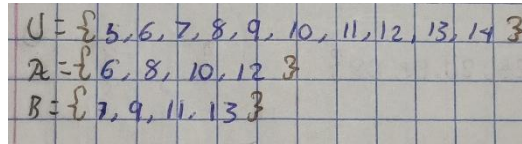 U = { 5, 6, 7, 8, 9, 10, 11, 12, 13, 14 }
A = { 6, 8, 10, 12 }
B = { 7, 9, 11, 13 }